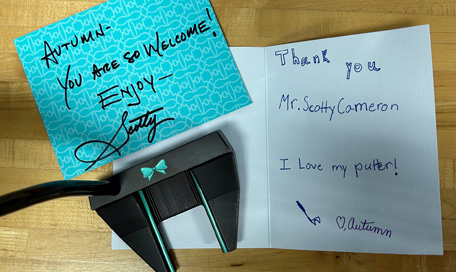 Autumn-
You are so Welcome!
Enjoy-
Scotty
Thank
you
Mr. Scotty Cameron
I Love my putter!
♡, Autumn